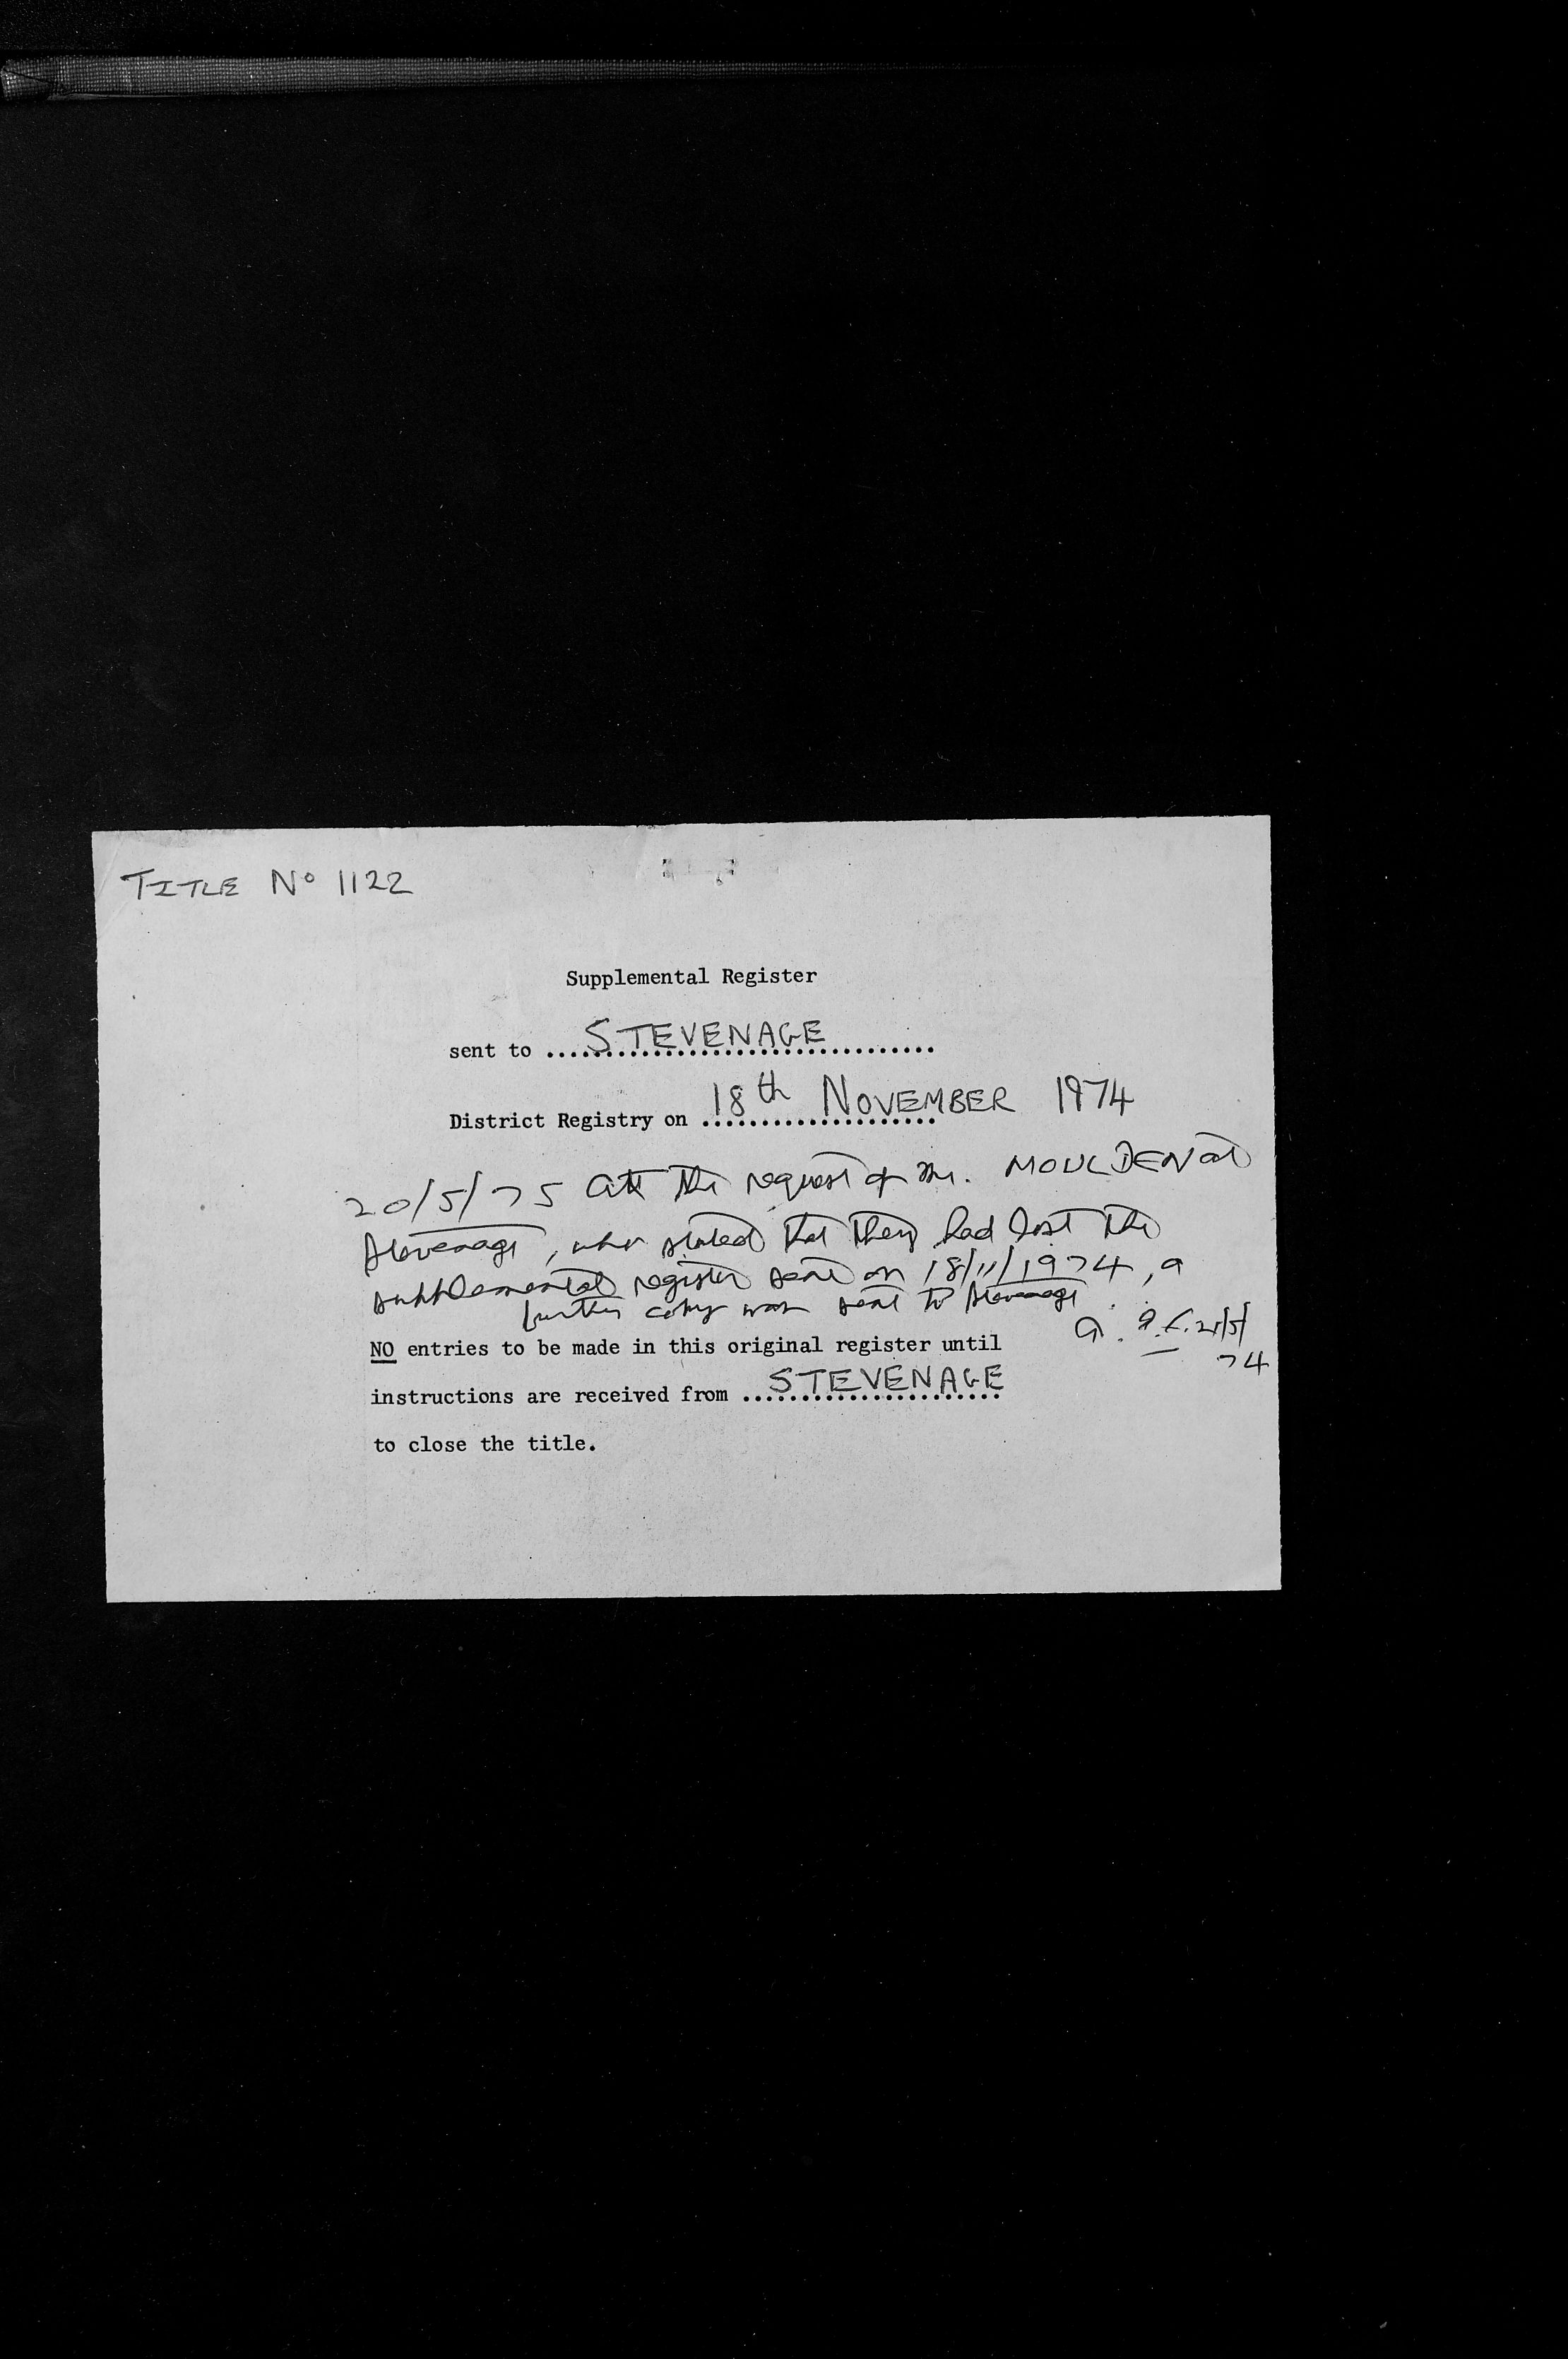 TITLE No 1122
Supplemental Register
sent to ...STEVENAGE...
District Registry on 18th NOVEMBER 1974
20/5/75 At the request of Mr. MOULDEN at
Stevenage, who stated that they had lost the
supplemental register sent on 18/11/1974, a
further copy was sent to Stevenage.
21/5/
74
NO entries to be made in this original register until
instructions are received from ...STEVENAGE...
to close the title.